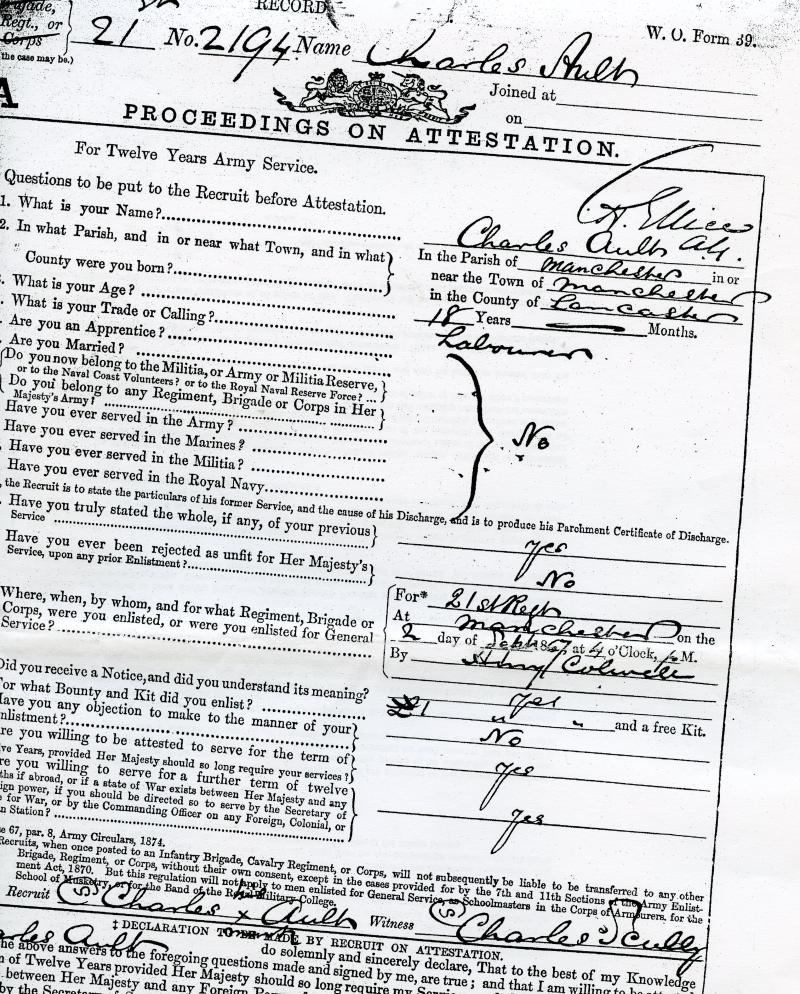 RECORD
Brigade,
Regt., or
Corps
the case may be.)
21 No. 2194 Name Charles Ault
W. O. Form 39.
Joined at
on
A
PROCEEDINGS ON ATTESTATION.
For Twelve Years Army Service.
Questions to be put to the Recruit before Attestation.
1. What is your Name?
Charles Ault
2. In what Parish, and in or near what Town, and in what
County were you born?
In the Parish of Manchester in or
near the Town of Manchester
in the County of Lancaster
What is your Age?
18 Years Months.
What is your Trade or Calling?
Labourer
Are you an Apprentice?
Are you Married?
Do you now belong to the Militia, or Army or Militia Reserve,
or to the Naval Coast Volunteers? or to the Royal Naval Reserve Force? ...
Do you belong to any Regiment, Brigade or Corps in Her
Majesty's Army?
Have you ever served in the Army?
No
Have you ever served in the Marines?
Have you ever served in the Militia?
Have you ever served in the Royal Navy
the Recruit is to state the particulars of his former Service, and the cause of his Discharge, and is to produce his Parchment Certificate of Discharge.
Have you truly stated the whole, if any, of your previous
Service
Yes
Have you ever been rejected as unfit for Her Majesty's
Service, upon any prior Enlistment?
No
Where, when, by whom, and for what Regiment, Brigade or
Corps, were you enlisted, or were you enlisted for General
Service?
For* 21st Regt
At Manchester on the
2 day of Sept 187 at 4 o'Clock, M.
By
Did you receive a Notice, and did you understand its meaning?
Yes
For what Bounty and Kit did you enlist?
£1 " " and a free Kit.
Have you any objection to make to the manner of your
nlistment?
No
re you willing to be attested to serve for the term of
ve Years, provided Her Majesty should so long require your services?
Yes
re you willing to serve for a further term of twelve
ths if abroad, or if a state of War exists between Her Majesty and any
ign power, if you should be directed so to serve by the Secretary of
e for War, or by the Commanding Officer on any Foreign, Colonial, or
n Station?
Yes
e 67, par. 8, Army Circulars, 1874.
Recruits, when once posted to an Infantry Brigade, Cavalry Regiment, or Corps, will not subsequently be liable to be transferred to any other
Brigade, Regiment, or Corps, without their own consent, except in the cases provided for by the 7th and 11th Sections of the Army Enlist-
ment Act, 1870. But this regulation will not apply to men enlisted for General Service, as Schoolmasters in the Corps of Armourers, for the
School of Musketry, or for the Band of the Royal Military College.
Recruit (S) Charles x Ault Witness (S) Charles Scully
‡ DECLARATION TO BE MADE BY RECRUIT ON ATTESTATION.
Ault do solemnly and sincerely declare, That to the best of my Knowledge
he above answers to the foregoing questions made and signed by me, are true; and that I am willing to be
m of Twelve Years provided Her Majesty should so long require my
between Her Majesty and any Foreign
by the Secretary of